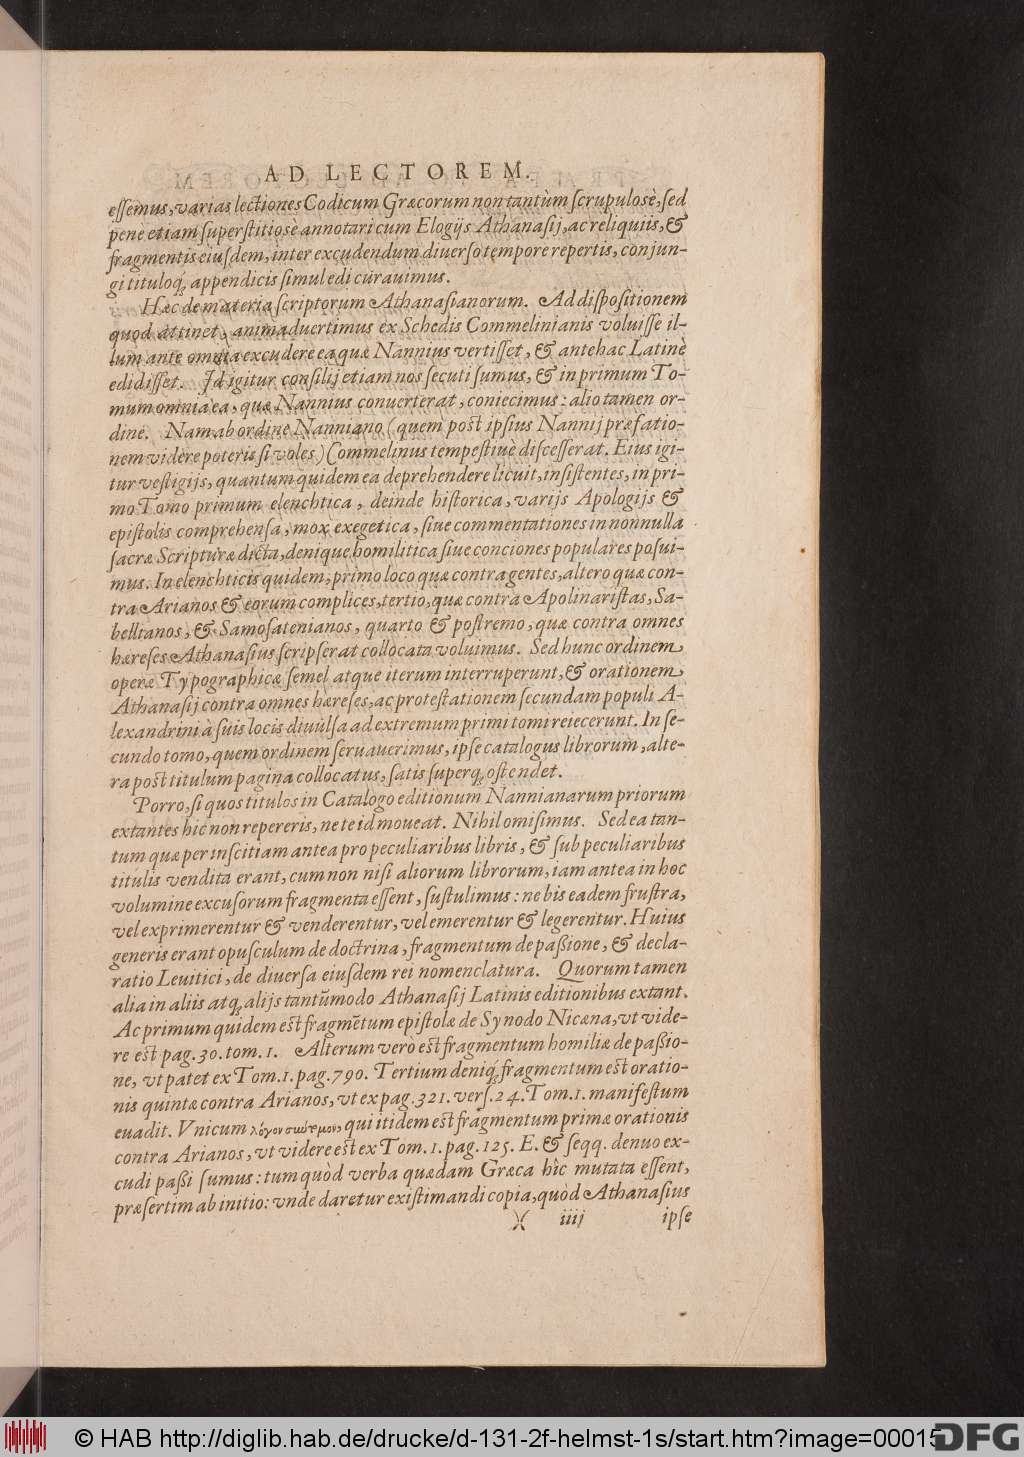 AD LECTOREM.
eſſemus, varias lectiones Codicum Græcorum non tantùm ſcrupulosè, ſed
penè etiam ſuperſtitiosè annotari cum Elogijs Athanaſij, ac reliquiis, &
fragmentis eiuſdem, inter excudendum diuerſo tempore repertis, coniun-
gi tituloq́; appendicis ſimul edi curauimus.
Hæc de materia ſcriptorum Athanaſianorum. Ad diſpoſitionem
quod attinet, animaduertimus ex Schedis Commelinianis voluiſſe il-
lum ante omnia excudere ea quæ Nannius vertiſſet, & antehac Latinè
edidiſſet. Id igitur conſilij etiam nos ſecuti ſumus, & in primum To-
mum omnia ea, quæ Nannius conuerterat, coniecimus: alio tamen or-
dine. Nam ab ordine Nanniano (quem poſt ipſius Nannij præfatio-
nem videre poteris ſi voles) Commelinus tempeſtiuè diſceſſerat. Eius igi-
tur veſtigijs, quantum quidem ea deprehendere licuit, inſiſtentes, in pri-
mo Tomo primum elenchtica, deinde hiſtorica, varijs Apologijs &
epiſtolis comprehenſa, mox exegetica, ſiue commentationes in nonnulla
ſacræ Scripturæ dicta, denique homilitica ſiue conciones populares poſui-
mus. In elenchticis quidem, primo loco quæ contra gentes, altero quæ con-
tra Arianos & eorum complices, tertio, quæ contra Apolinariſtas, Sa-
bellianos, & Samoſatenianos, quarto & poſtremo, quæ contra omnes
hæreſes Athanaſius ſcripſerat collocata voluimus. Sed hunc ordinem
operæ Typographicæ ſemel atque iterum interruperunt, & orationem
Athanaſij contra omnes hæreſes, ac proteſtationem ſecundam populi A-
lexandrini à ſuis locis diuulſa ad extremum primi tomi reiecerunt. In ſe-
cundo tomo, quem ordinem ſeruauerimus, ipſe catalogus librorum, alte-
ra poſt titulum pagina collocatus, ſatis ſuperq; oſtendet.
Porro, ſi quos titulos in Catalogo editionum Nannianarum priorum
extantes hic non repereris, ne te id moueat. Nihil omiſimus. Sed ea tan-
tum quæ per inſcitiam antea pro peculiaribus libris, & ſub peculiaribus
titulis vendita erant, cum non niſi aliorum librorum, iam antea in hoc
volumine excuſorum fragmenta eſſent, ſuſtulimus: ne bis eadem fruſtra,
vel exprimerentur & venderentur, vel emerentur & legerentur. Huius
generis erant opuſculum de doctrina, fragmentum de paßione, & decla-
ratio Leuitici, de diuerſa eiuſdem rei nomenclatura. Quorum tamen
alia in aliis atq; alijs tantũmodo Athanaſij Latinis editionibus extant.
Ac primum quidem eſt fragmẽtum epiſtolæ de Synodo Nicæna, vt vide-
re eſt pag. 30. tom. 1. Alterum verò eſt fragmentum homiliæ de paßio-
ne, vt patet ex Tom. 1. pag. 790. Tertium deniq́; fragmentum eſt oratio-
nis quintæ contra Arianos, vt ex pag. 321. verſ. 24. Tom. 1. manifeſtum
euadit. Vnicum λόγον qui itidem eſt fragmentum primæ orationis
contra Arianos, vt videre eſt ex Tom. 1. pag. 125. E. & ſeqq. denuo ex-
cudi paßi ſumus: tum quòd verba quædam Græca hîc mutata eſſent,
præſertim ab initio: vnde daretur exiſtimandi copia, quòd Athanaſius
)( iiij ipſe
© HAB http://diglib.hab.de/drucke/d-131-2f-helmst-1s/start.htm?image=00015
DFG